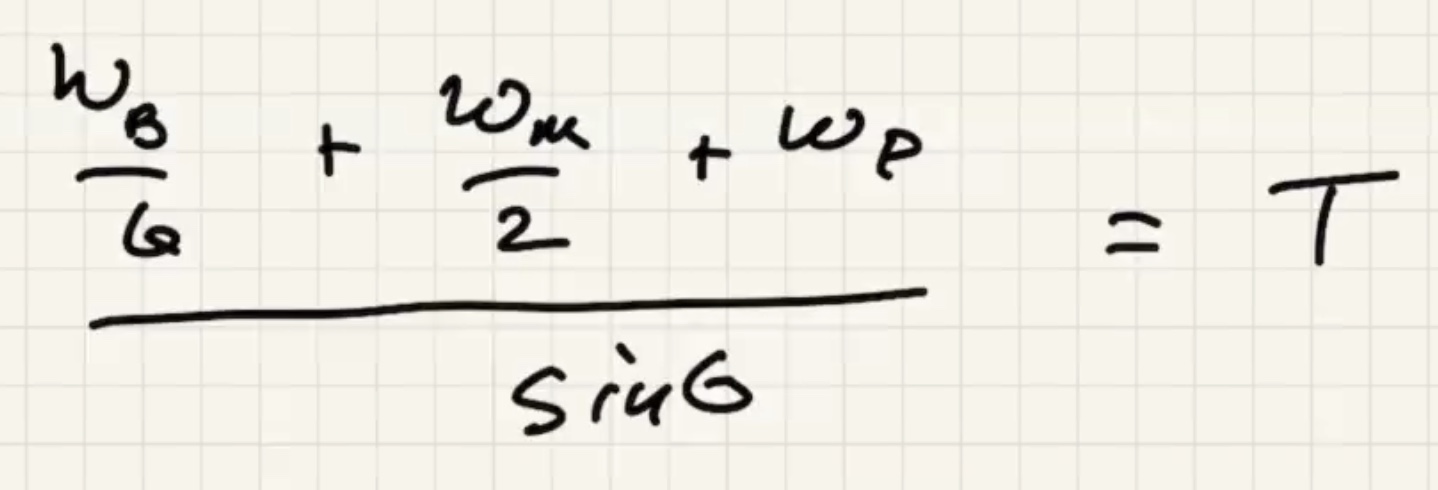 W_B/6 + W_m/2 + W_P
――――――――― = T
sinθ